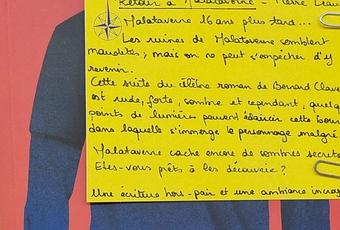 Retour à Malataverne - Pierre Léau
Malataverne 16 ans plus tard...
Les ruines de Malataverne semblent
maudites ; mais on ne peut s'empêcher d'y
revenir.
Cette suite du célèbre roman de Bernard Clave
est rude, forte, sombre et cependant, quelq
points de lumière peuvent éclaircir cette
dans laquelle s'immerge le personnage malgré
Malataverne cache encore de sombres secrets
Etes-vous prêts à les découvrir ?
Une écriture hors-pair et une ambiance incroy